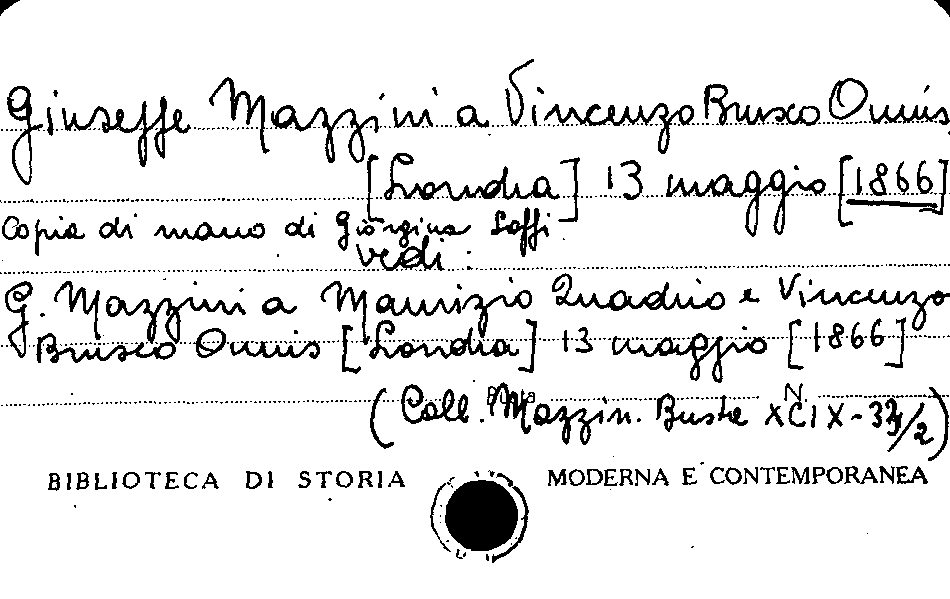 Giuseppe Mazzini a Vincenzo Brusco Onnis
[Londra] 13 maggio [1866]
Copia di mano di Giorgina Saffi
vedi:
G. Mazzini a Maurizio Quadrio e Vincenzo
Brusco Onnis [Londra] 13 maggio [1866]
(Coll. Mazzin. Busta XCIX-33/2)
N.
BIBLIOTECA DI STORIA MODERNA E CONTEMPORANEA